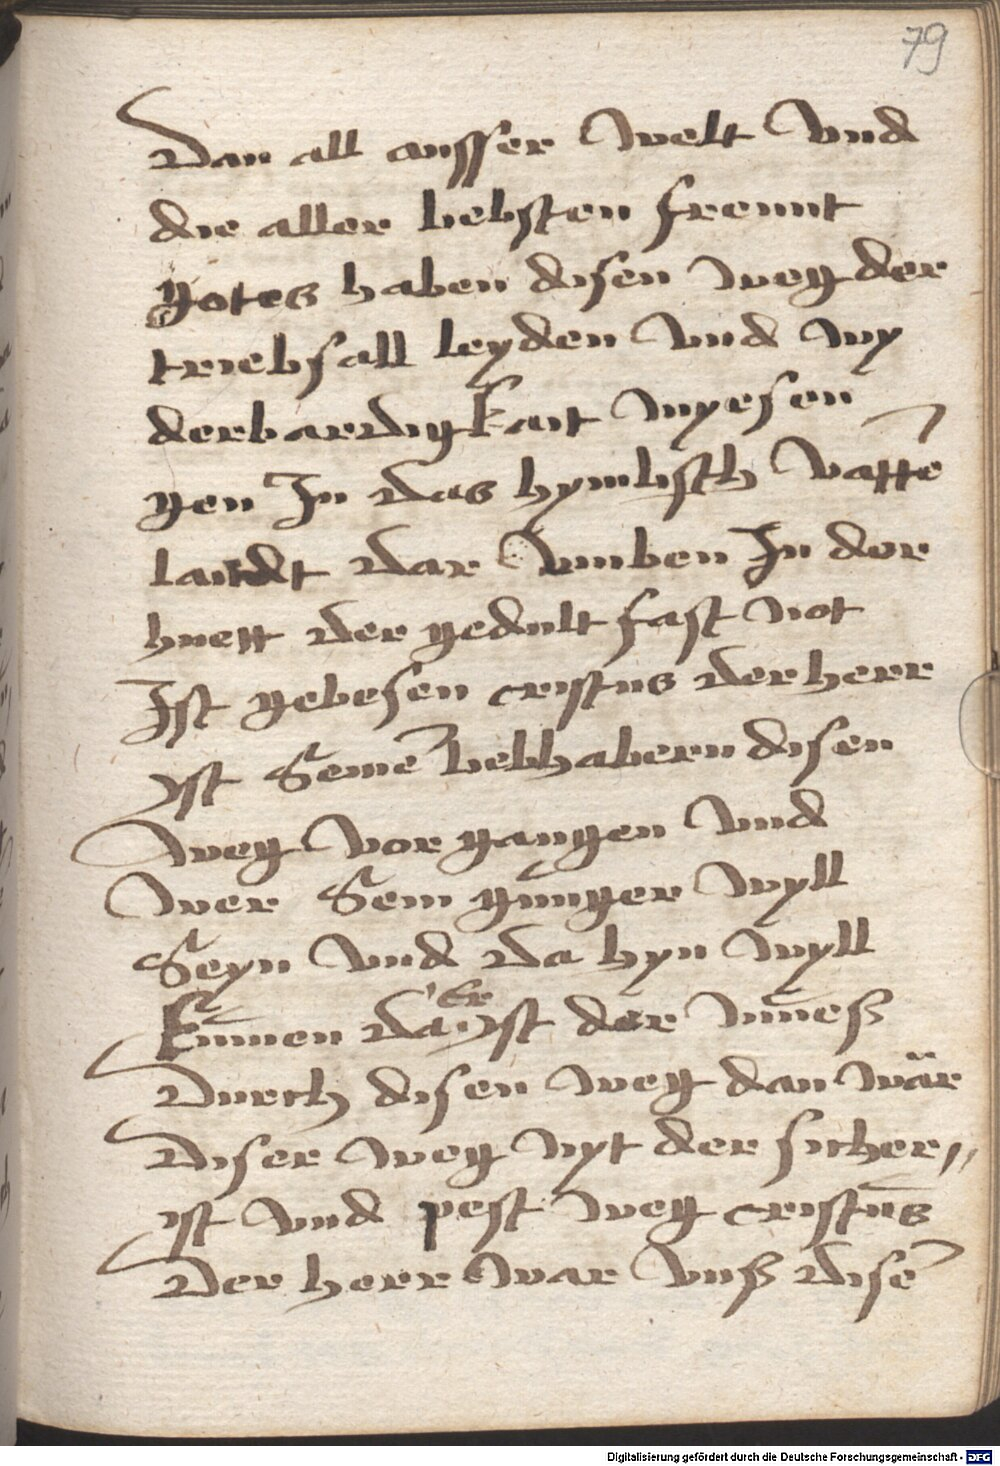 79
Dan all ausser welt vnd
die aller liebsten freunt
gotes haben disen weg der
triebsall leyden vnd wy
derbardigkait myesen
gen In das hymlisch vatte͂
landt dar vmben In der
huett der gedult fast not
Ist gebesen cristus der herr
yst seine͂ liebhabern disen
weg vor gangen vnd
wer sein gu͂nger wyll
Seyn vnd da hyn wyll
ku͂men da Er yst der mu͂eß
Durch disen weg dan wär
Diser weg nyt der sicher,,
ist vnd pest weg cristus
Der herr war vnß dise͂
Digitalisierung gefördert durch die Deutsche Forschungsgemeinschaft - DFG